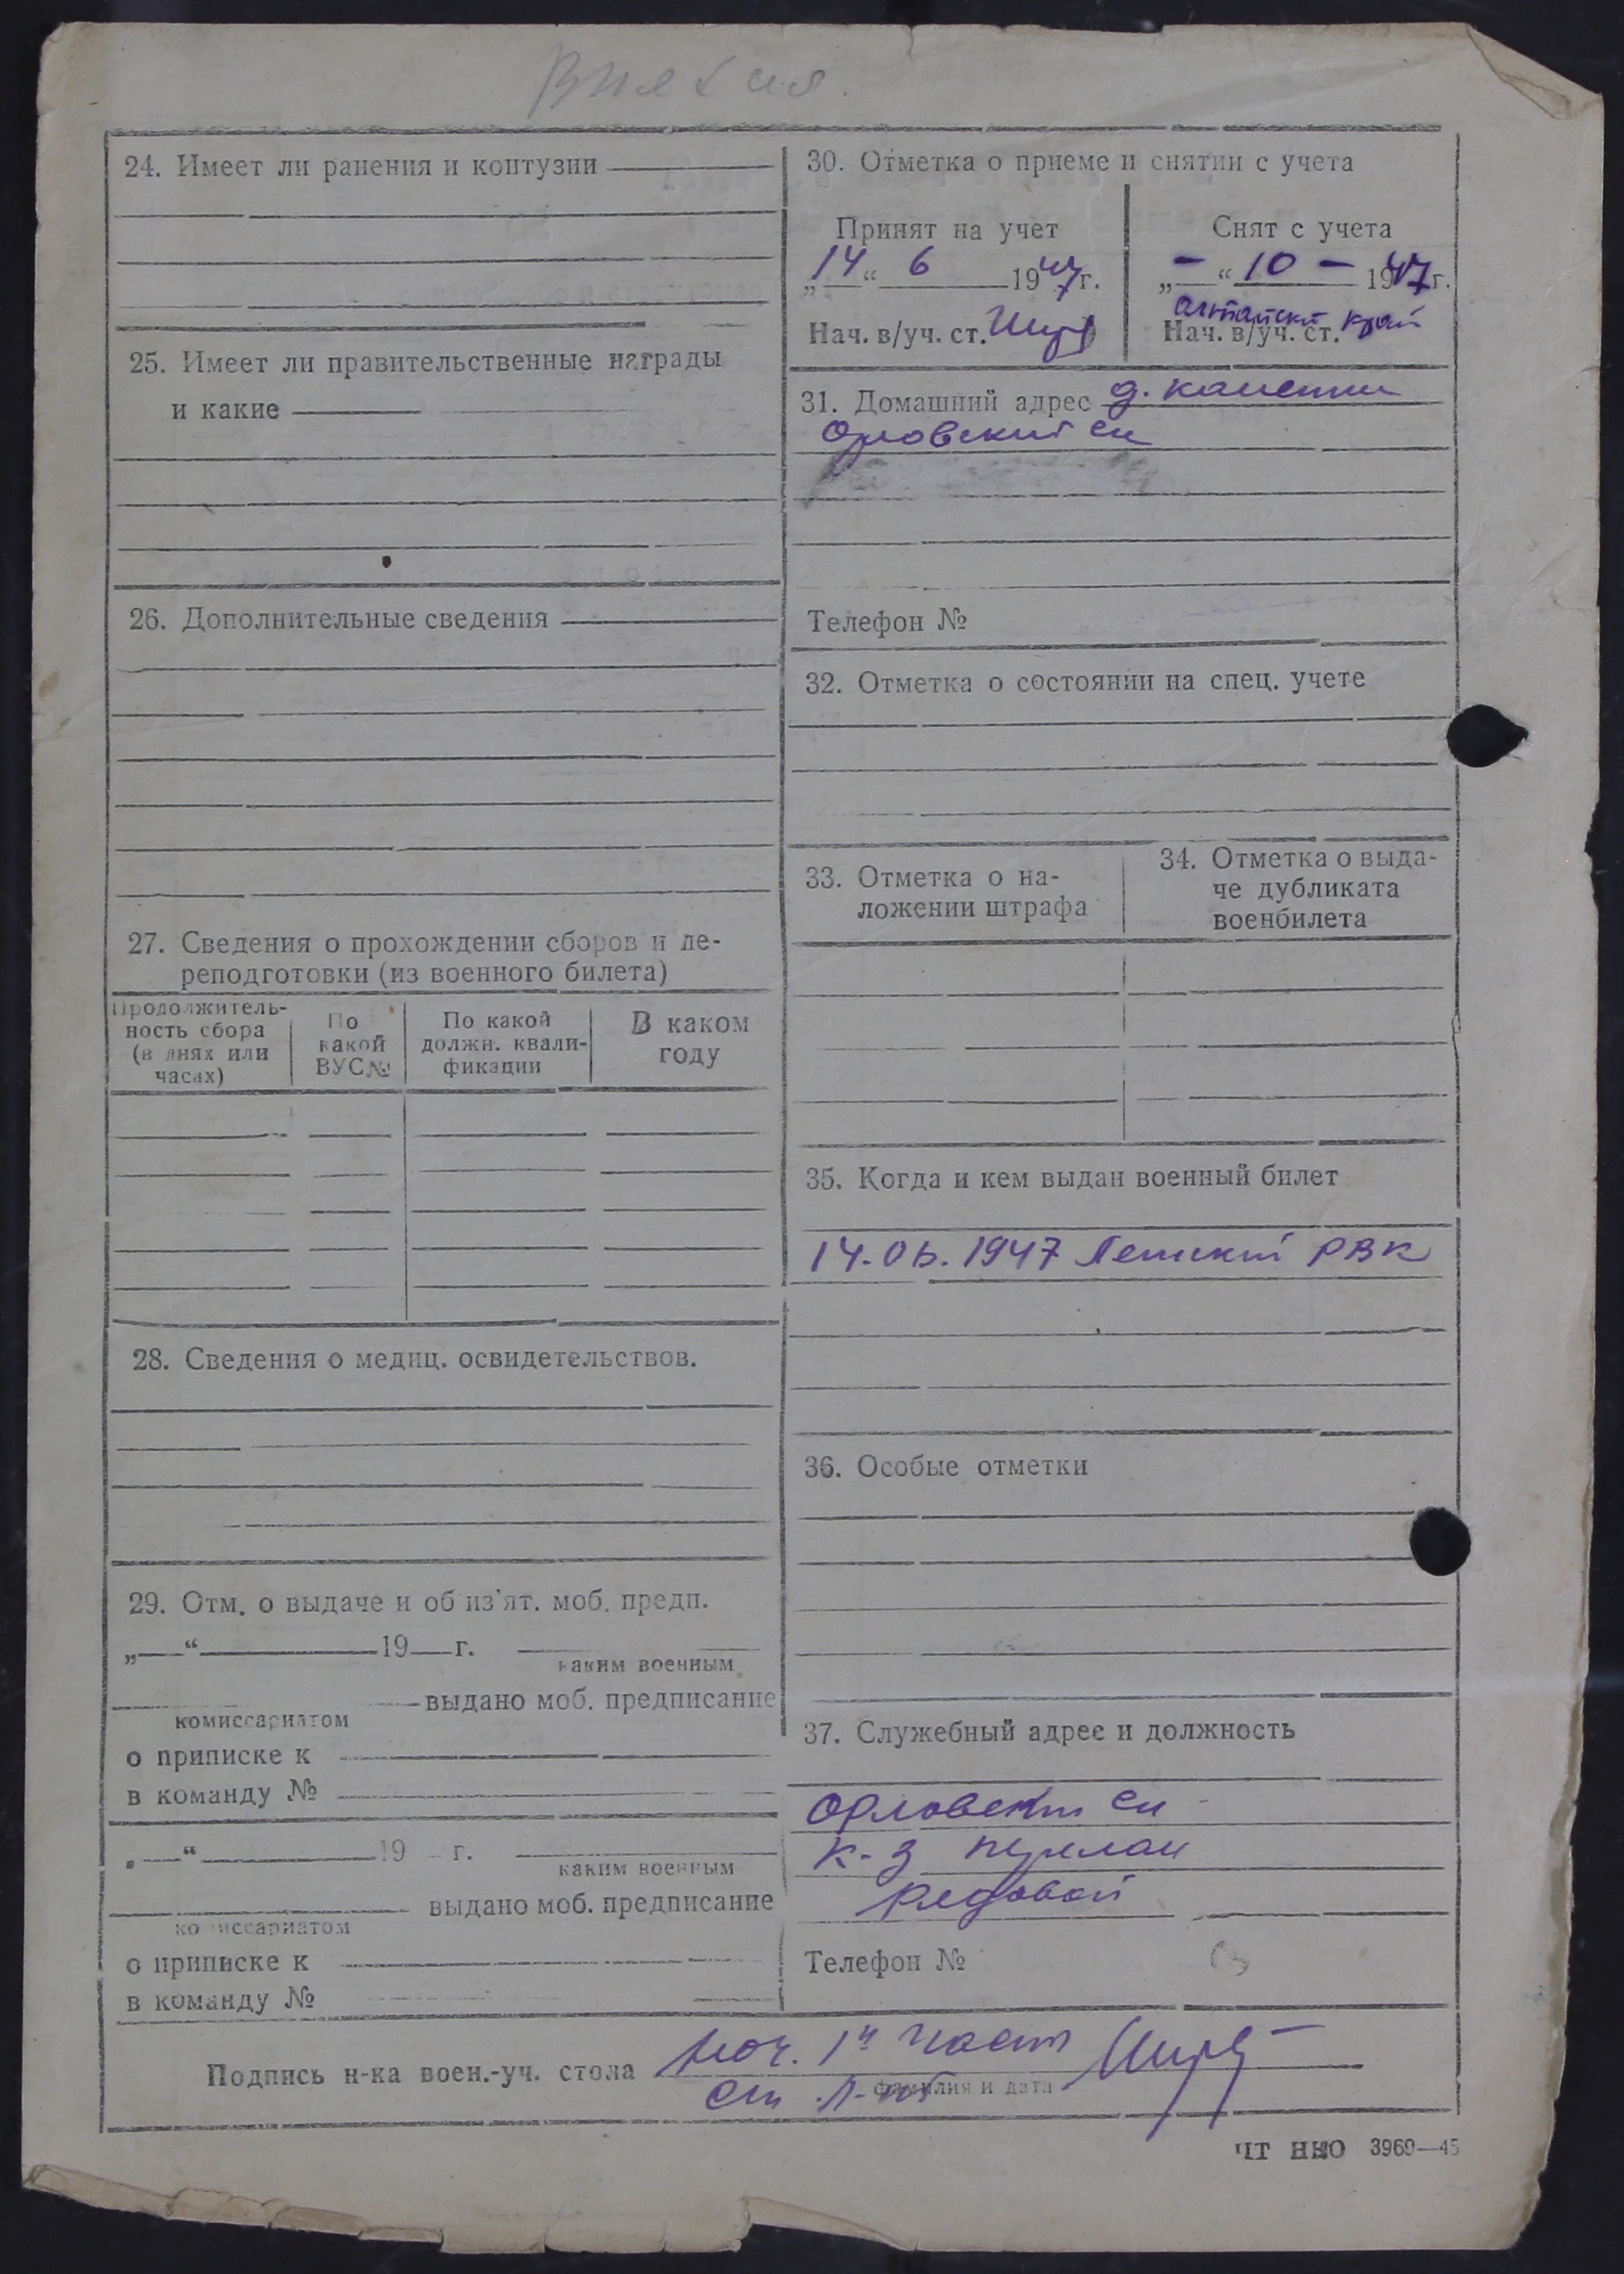 24. Имеет ли ранения и контузии
25. Имеет ли правительственные награды
и какие
26. Дополнительные сведения
27. Сведения о прохождении сборов и пе-
реподготовки (из военного билета)
Продолжитель-
ность сбора
(в днях или
часах)
По
какой
ВУС№
По какой
должн. квали-
фикации
В каком
году
28. Сведения о медиц. освидетельствов.
29. Отм. о выдаче и об из'ят. моб. предп.
„ “ 19 г.
каким военным
выдано моб. предписание
комиссариатом
о приписке к
в команду №
„ “ 19 г.
каким военным
выдано моб. предписание
комиссариатом
о приписке к
в команду №
30. Отметка о приеме и снятии с учета
Принят на учет
„14“ 6 1947г.
Нач. в/уч. ст.
Снят с учета
„-“ 10 - 1947г.
Алтайский край
Нач. в/уч. ст.
31. Домашний адрес д.
Орловский с/с
Телефон №
32. Отметка о состоянии на спец. учете
33. Отметка о на-
ложении штрафа
34. Отметка о выда-
че дубликата
военбилета
35. Когда и кем выдан военный билет
14.06.1947 РВК
36. Особые отметки
37. Служебный адрес и должность
Орловский с/с
к-з
рядовой
Телефон №
Подпись н-ка воен.-уч. стола нач. 1й части
ст. л-нт
фамилия и дата
ЧТ НКО 3969—45